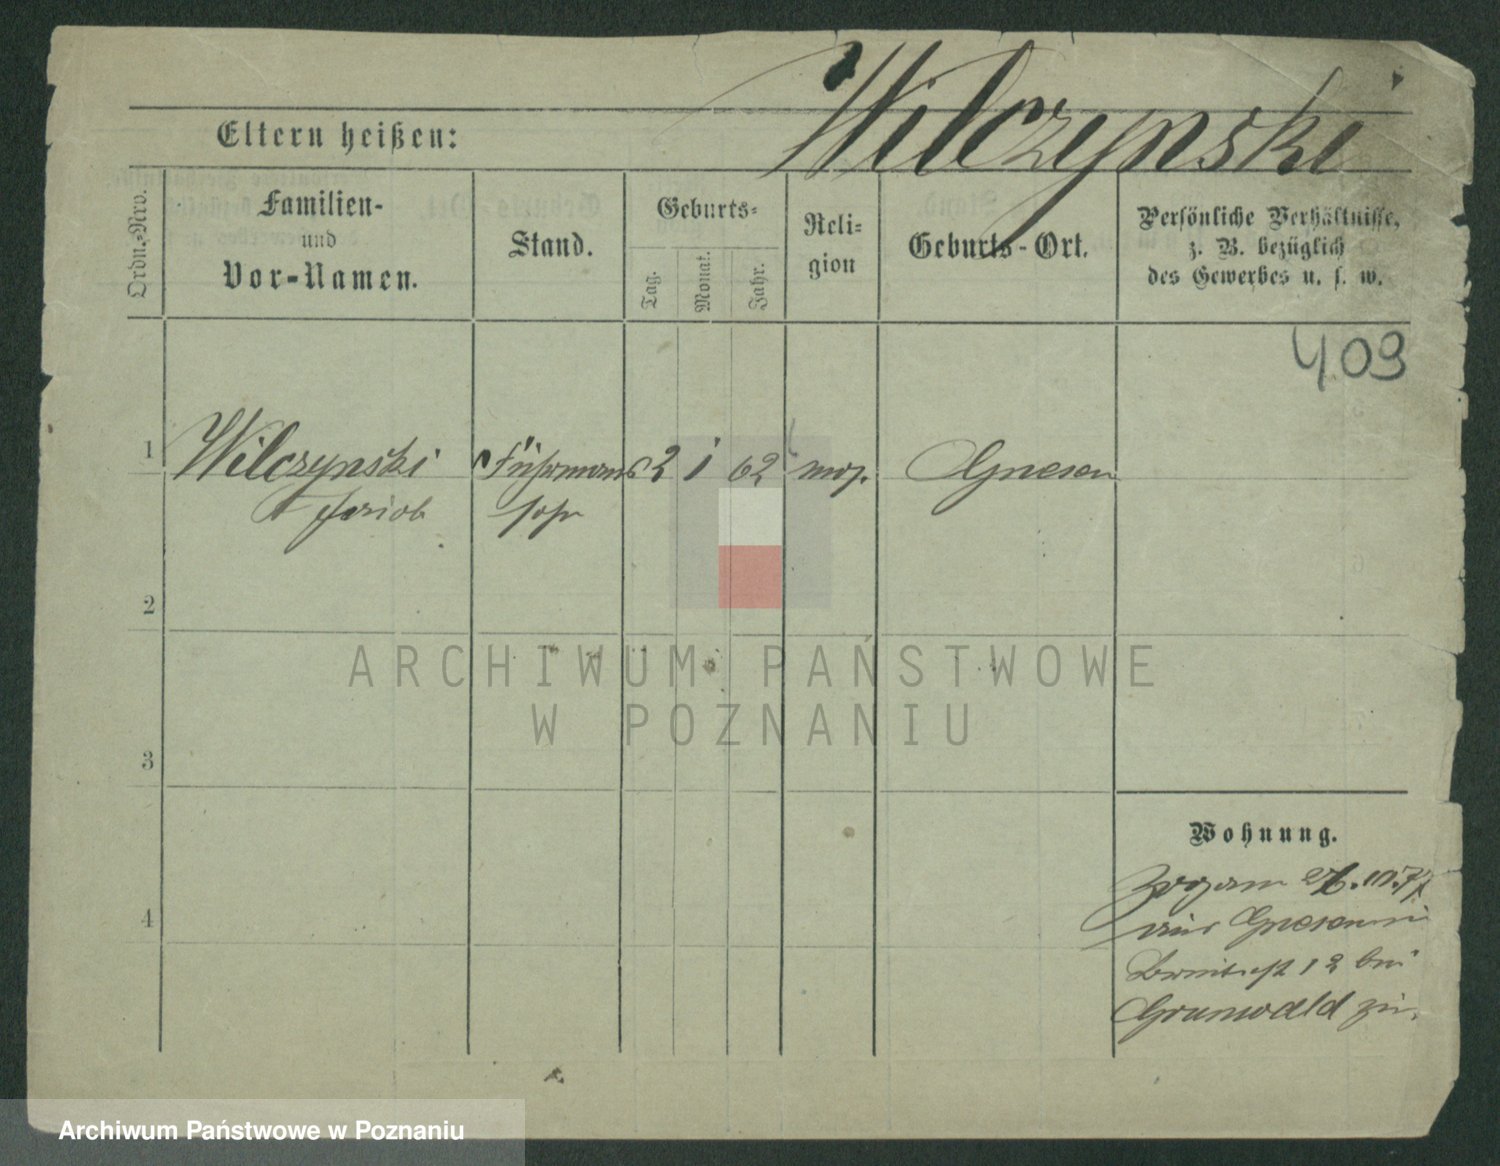 Wilczynski
Eltern heißen:
Ordn.-Nro.
Familien-
und
Vor-Namen.
Stand.
Geburts-
Tag.
Monat.
Jahr.
Reli-
gion
Geburts-Ort.
Persönliche Verhältnisse,
z. B. bezüglich
des Gewerbes u. s. w.
409
1 Wilczynski Fuhrmans 2 1 62 mos. Gnesen
Jacob sohn
2
3
4
ARCHIWUM PAŃSTWOWE
W POZNANIU
Wohnung.
Zugezogen
aus Gnesen
Breitestr 12 bei
Grunwald zu.
Archiwum Państwowe w Poznaniu